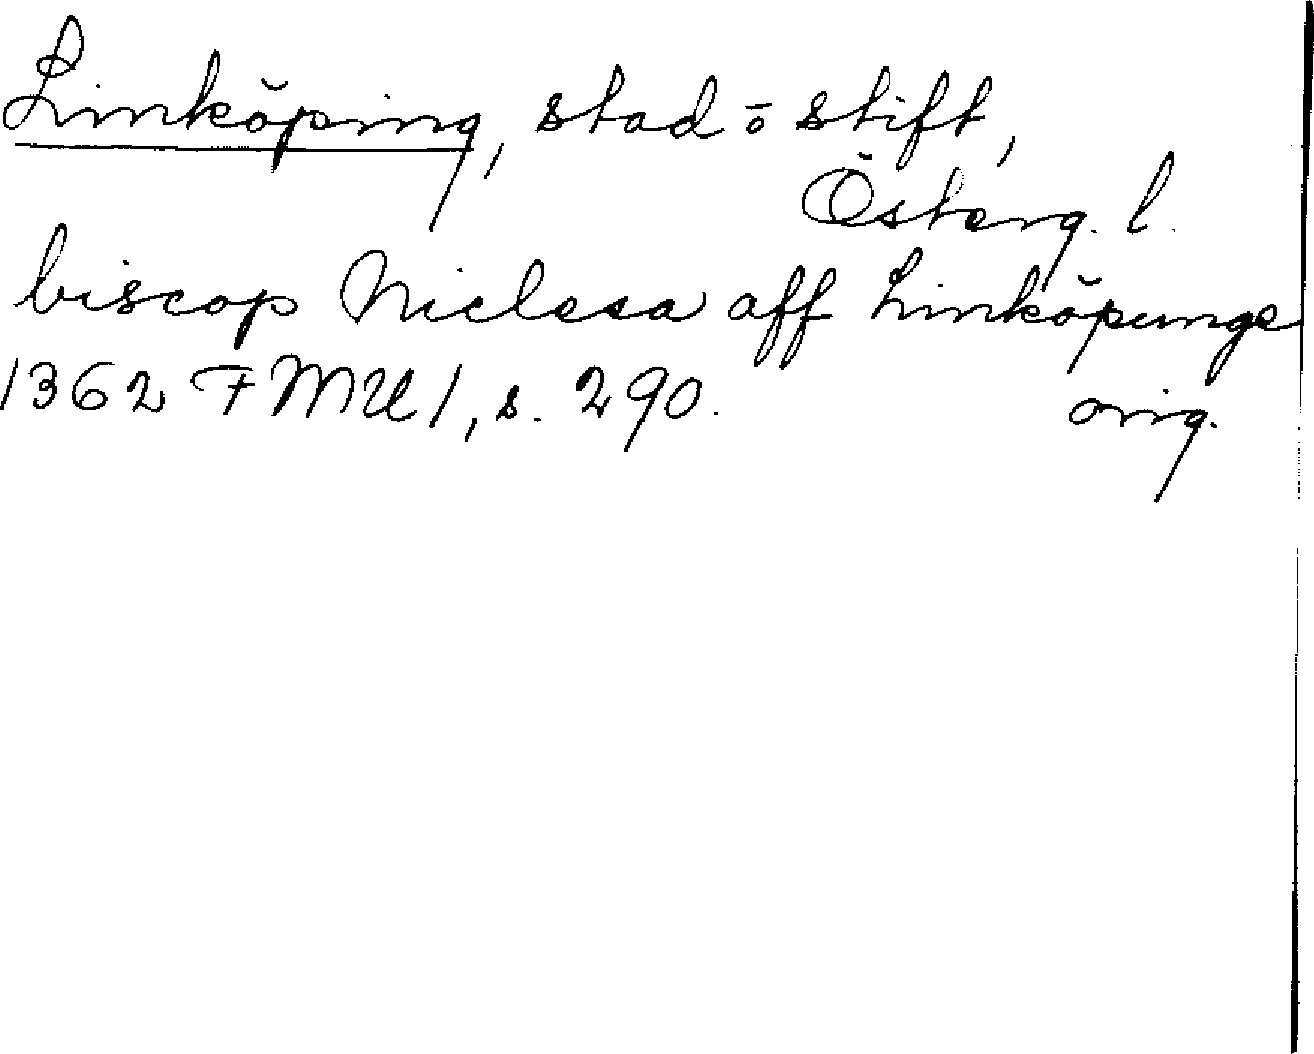 Linköping, stad o stift,
Österg. l.
biscop Niclesa aff Linköpunge
1362 FMU 1, s. 290. orig.